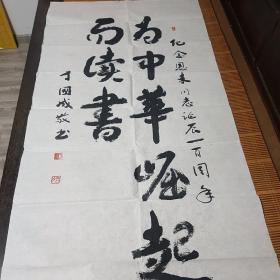 纪念周恩来同志诞辰一百周年
为中华崛起
而读书
丁国成敬书